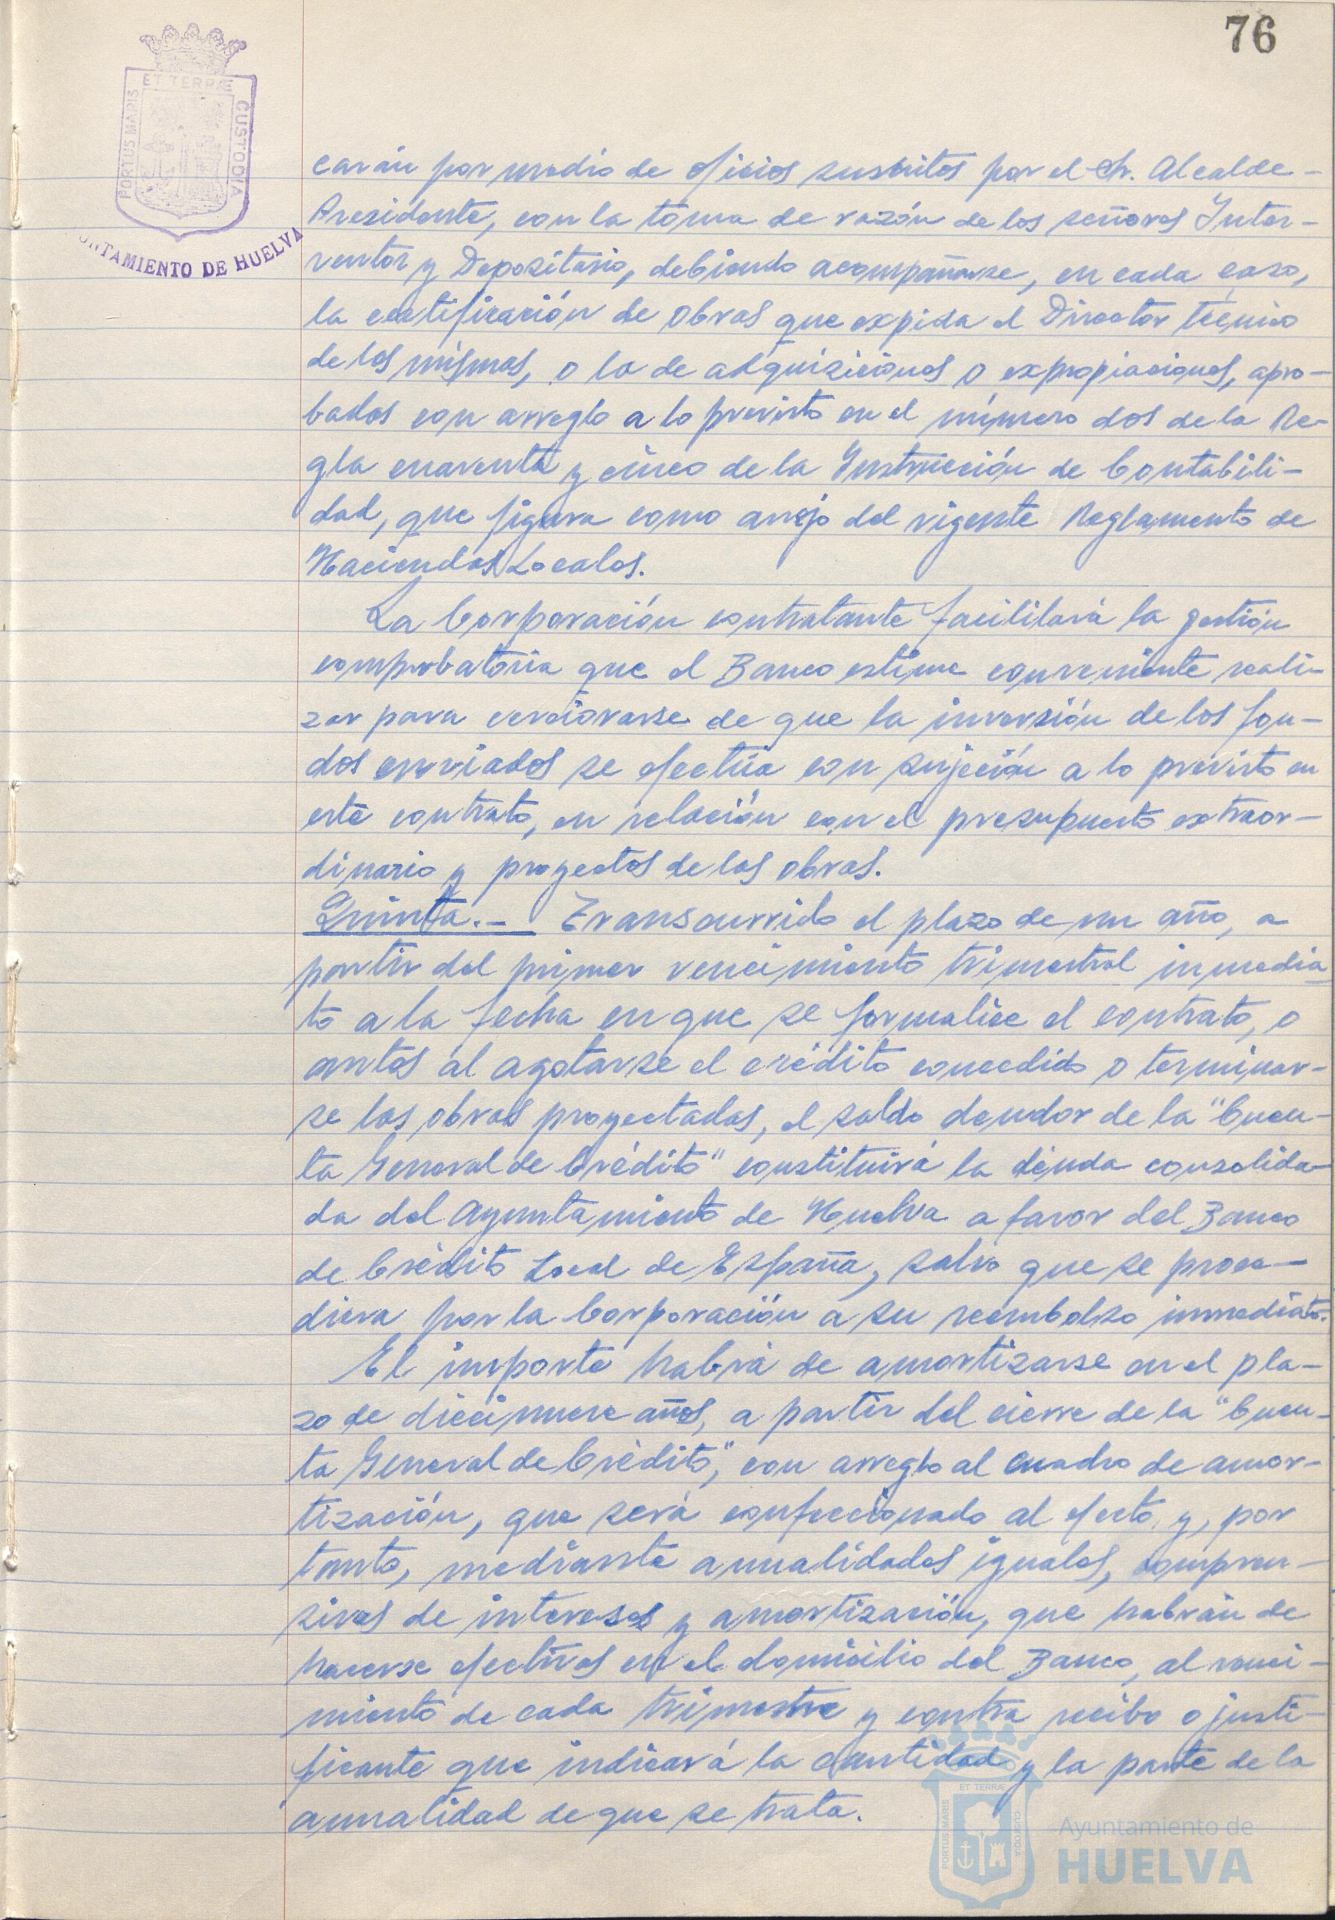 76
ET TERRÆ
PORTUS MARIS
CUSTODIA
AYUNTAMIENTO DE HUELVA
carán por medio de oficios suscritos por el Sr. Alcalde-
Presidente, con la toma de razón de los señores Inter-
ventor y Depositario, debiendo acompañarse, en cada caso,
la certificación de obras que expida el Director técnico
de las mismas, o la de adquisiciones o expropiaciones, apro-
bados con arreglo a lo previsto en el número dos de la Re-
gla cuarenta y cinco de la Instrucción de Contabili-
dad, que figura como anejo del vigente Reglamento de
Haciendas Locales.
La Corporación contratante facilitará la gestión
comprobatoria que el Banco estime conveniente reali-
zar para cerciorarse de que la inversión de los fon-
dos enviados se efectúa con sujeción a lo previsto en
este contrato, en relación con el presupuesto extraor-
dinario y proyectos de las obras.
Quinta.- Transcurrido el plazo de un año, a
partir del primer vencimiento trimestral inmedia
to a la fecha en que se formalice el contrato, o
antes al agotarse el crédito concedido o terminar-
se las obras proyectadas, el saldo deudor de la "Cuen-
ta General de Crédito" constituirá la deuda consolida-
da del Ayuntamiento de Huelva a favor del Banco
de Crédito Local de España, salvo que se proce-
diera por la Corporación a su reembolso inmediato.
El importe habrá de amortizarse en el pla-
zo de diecinueve años, a partir del cierre de la "Cuen-
ta General de Crédito", con arreglo al cuadro de amor-
tización, que será confeccionado al efecto, y, por
tanto, mediante anualidades iguales, compren-
sivas de intereses y amortización, que habrán de
hacerse efectivas en el domicilio del Banco, al venci-
miento de cada trimestre y contra recibo o justi-
ficante que indicará la cantidad y la parte de la
anualidad de que se trata.
ET TERRÆ
PORTUS MARIS
CUSTODIA
Ayuntamiento de
HUELVA